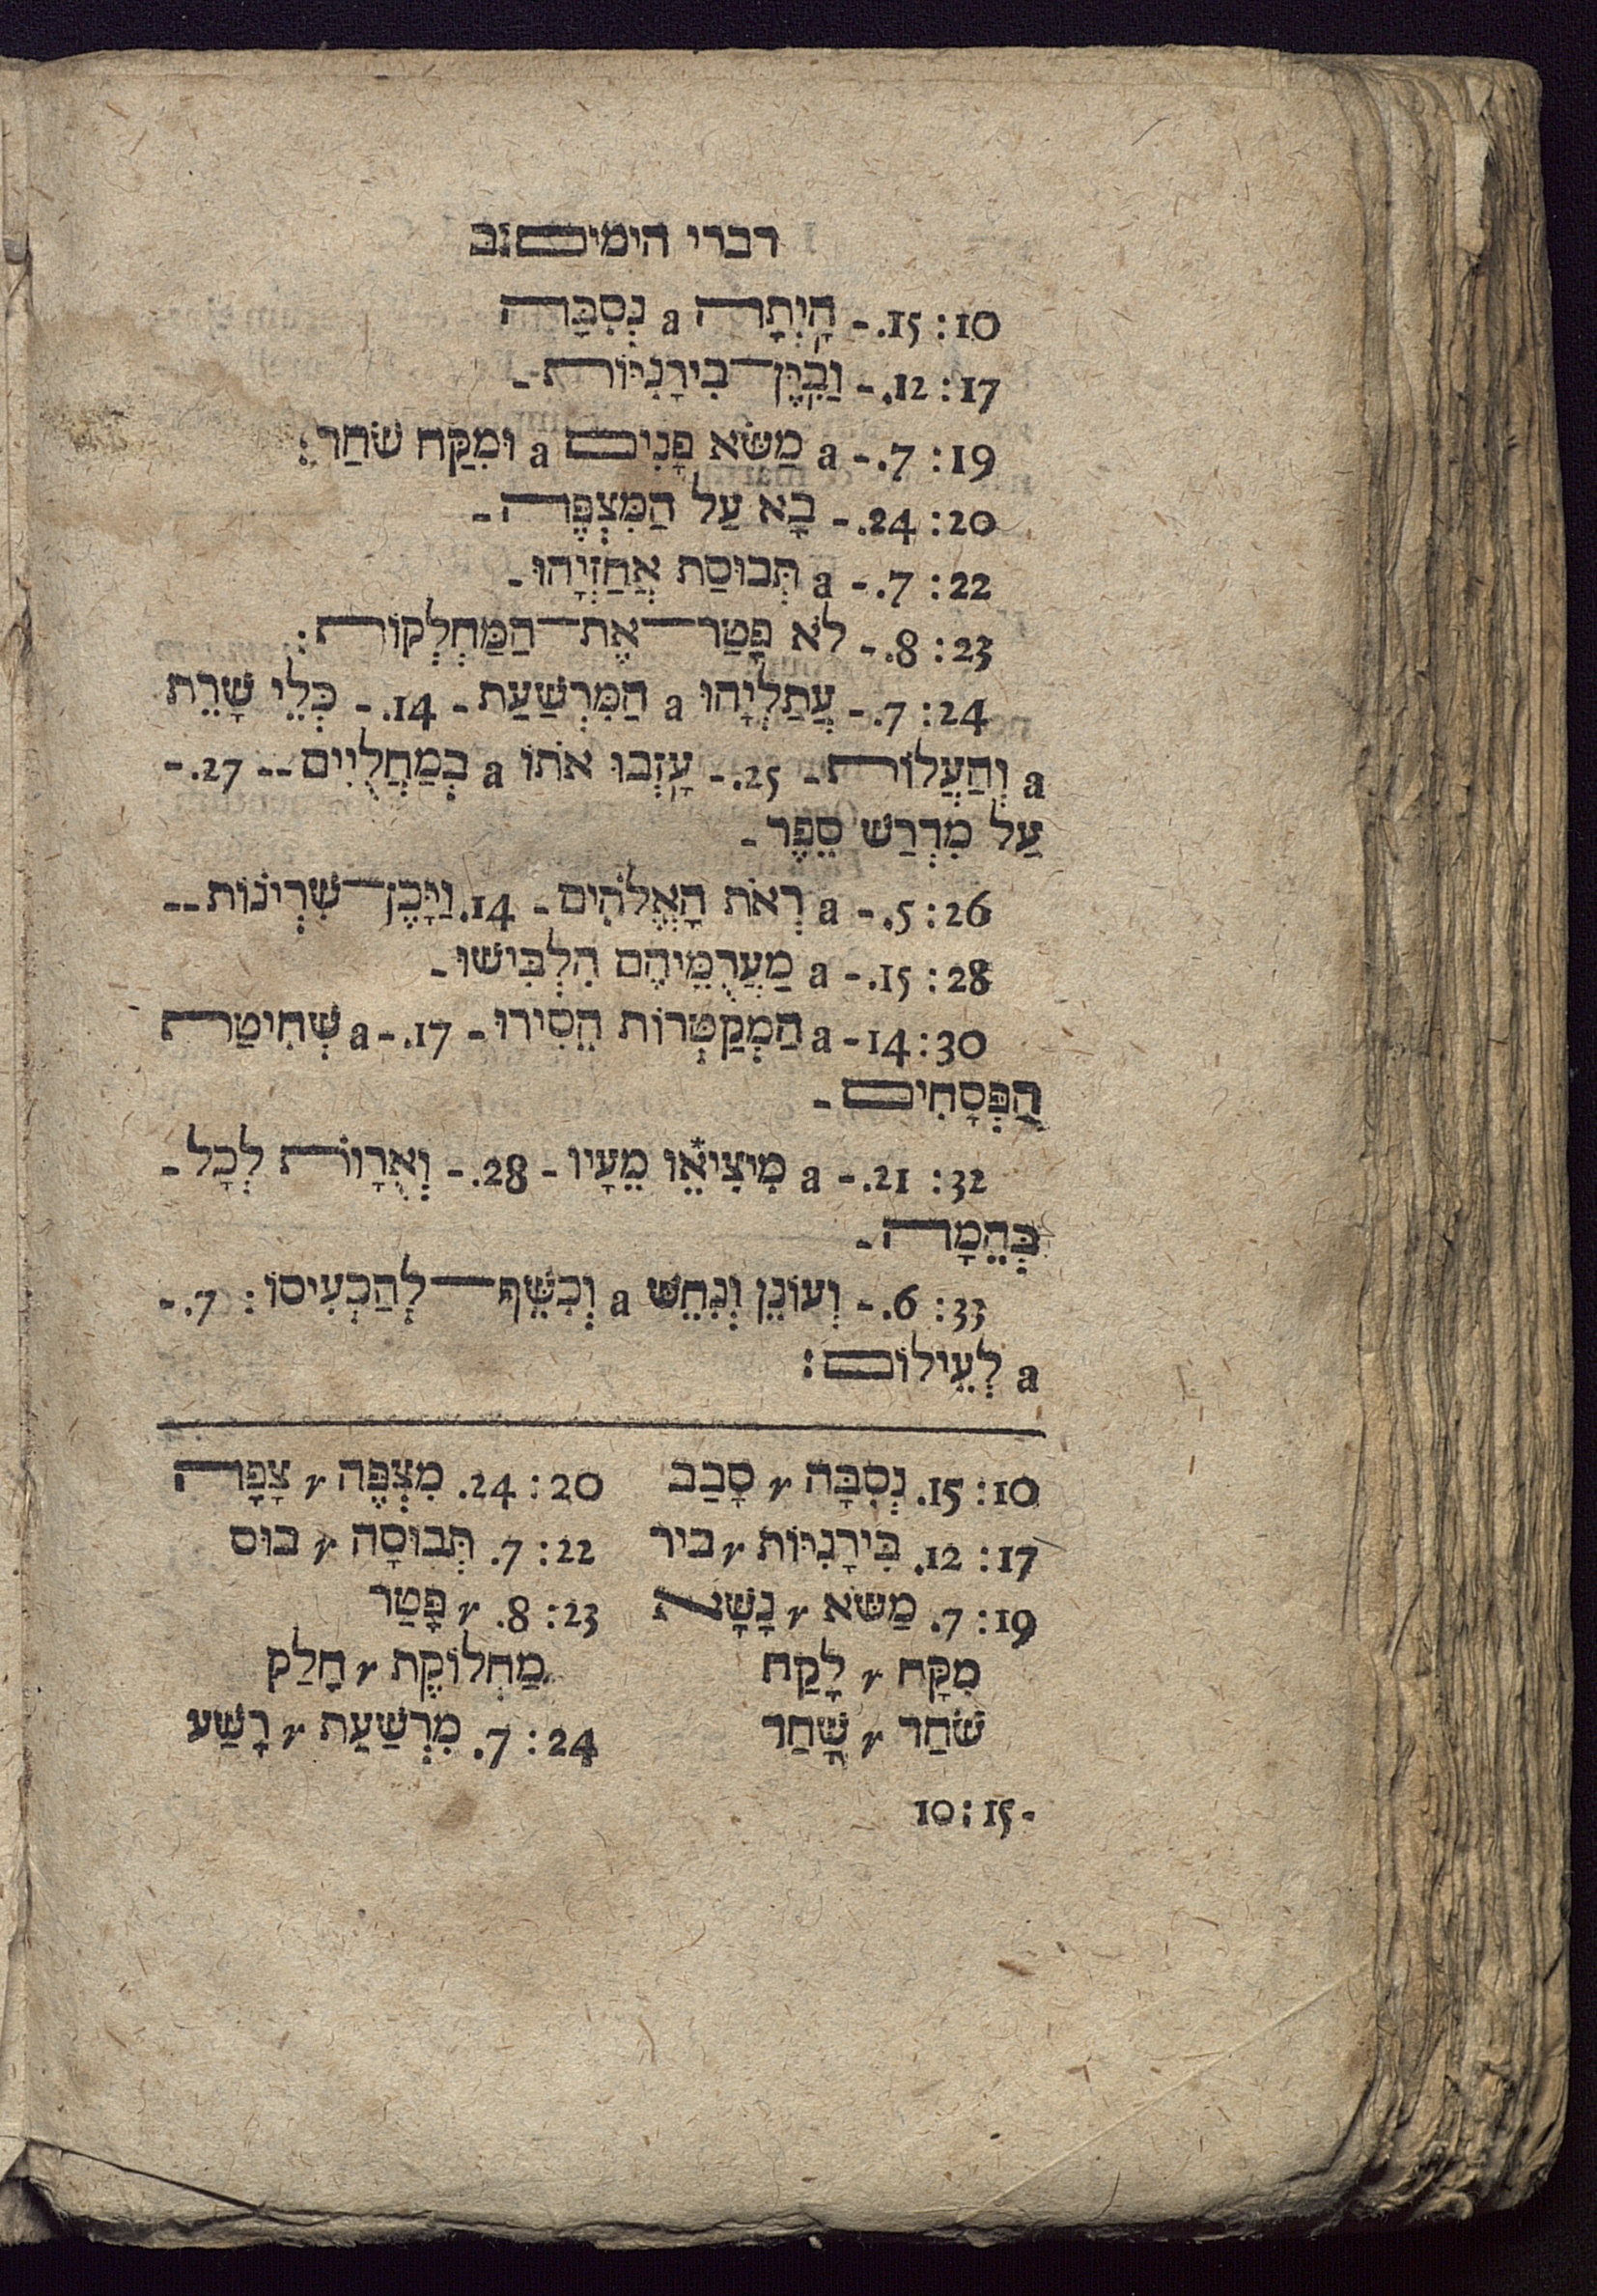 דברי הימים:ב
10: 15.- הָיְתָה a נְסִבָּה
17: 12.- וַבִיֶּן־בִירָנִיּוֹת-
19: 7.- a מַשּׂא פָנִים a וּמִקַּח שׁחַר:
20: 24.- בָא עַל הַמִּצְפֶּה-
22: 7.- a תְּבוּסַת אֲחַזְיָהוּ-
23: 8.- לֹא פָטַר־אֶת־הַמַּחְלְקוֹת:
24: 7.- עֲתַלְיָהוּ a הַמִּרְשַׁעַת- 14.- כְּלֵי שָׁרֵת
a וְהַעֲלוֹת- 25.- עָזְבוּ אֹתוֹ a בְמַחֲלֻיִים-- 27.-
עַל מִדְרַשׁ סֵפֶר-
26: 5.- a רְאֹת הָאֱלֹהִים- 14. וַיָּכֶן־שִׁרְיֹנוֹת--
28: 15.- a מַעֲרֻמֵּיהֶם הִלְבִּישׁוּ-
30: 14- a הַמְקַטְּרוֹת הֵסִירוּ- 17.- a שְׁחִיטַת
הַפְּסָחִים-
32: 21.- a מִיצִיאֵ֯ו מֵעָיו- 28.- וְאֻרָוֹת לְכָל-
בְּהֵמָה-
33: 6.- וְעוֹנֵן וְנִחֵשׁ a וְכִשֵּׁף־לְהַכְעִיסוֹ: 7.-
a לְעֵילוֹם:
10: 15. נְסִבָּה r סָבַב
17: 12. בִּירָנִיּוֹת r ביר
19: 7. מַשּׂא r נָשָׂא
מִקָּח r לָקַח
שׁחַר r שָׁחַר
20: 24. מִצְפֶּה r צָפָה
22: 7. תְּבוּסָה r בוּס
23: 8. r פָּטַר
מַחְלוֹקֶת r חָלַק
24: 7. מִרְשַׁעַת r רָשַׁע
10: 15-